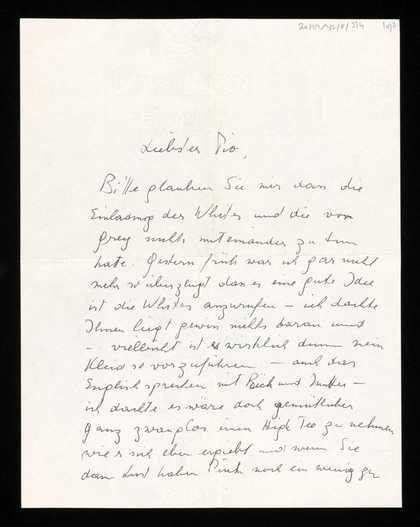 Liebster Dio,
Bitte glauben Sie mir dass die
Einladung der Whites und die von
Grey nichts miteinander zu tun
hatte. Gestern früh war ich gar nicht
mehr so überzeugt dass es eine gute Idee
ist die Whites anzurufen – ich dachte
Ihnen liegt gewiss nichts daran und
– vielleicht ist es wirklich dumm mein
Kleid so vorzuführen – auch das
English sprechen mit und –
ich dachte es wäre doch gemütlicher
ganz zwanglos einen High Tea zu nehmen
wie es sich eben ergiebt und wenn Sie
dann Lust haben noch ein wenig zu